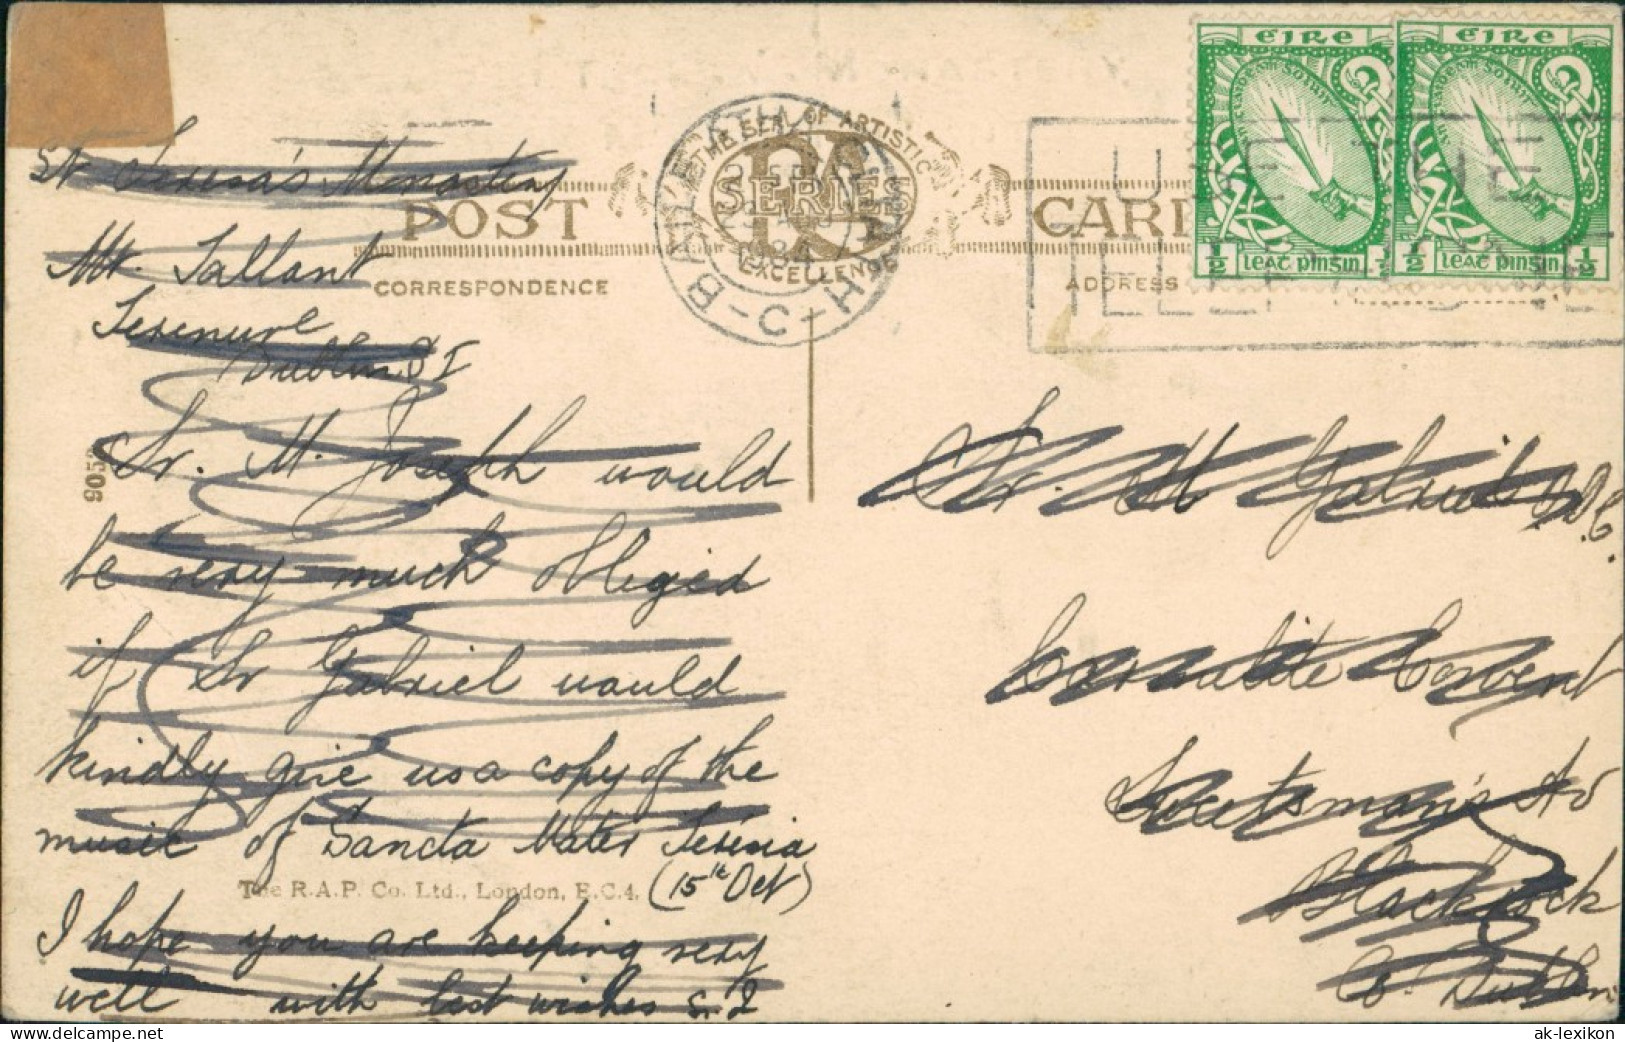 St Teresa's Monastery
Mt. Tallant
Terenure
Dublin. S I
Sr. M. Joseph would
be very much obliged
if Sr Gabriel would
kindly give us a copy of the
music of Sancta Mater Teresia
(15th Oct)
I hope you are keeping very
well with best wishes
POST CARD
CORRESPONDENCE
ADDRESS
THE SEAL OF ARTISTIC EXCELLENCE
SERIES
BAILE ÁTHA CLIATH
1934
éire
éire
½ leat pinsin ½
½ leat pinsin ½
9053
The R.A.P. Co. Ltd., London, E.C.4.
Sr. M Gabriel O.D.C.
Carmelite Convent
Sweetman's Av
Blackrock
Co. Dublin
ak-lexikon